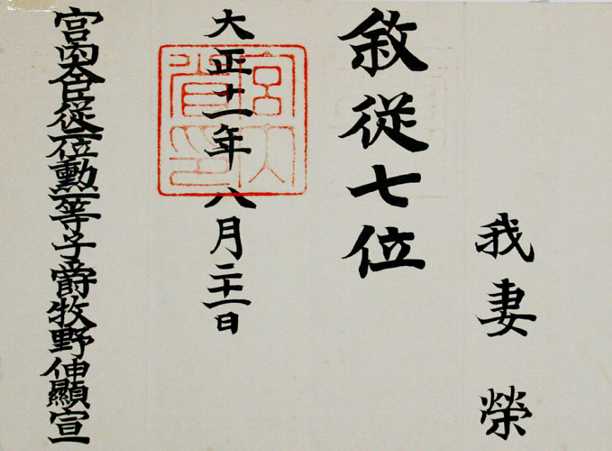 我妻榮
敘従七位
大正十一年八月二十一日
宮内大臣従二位勲一等子爵牧野伸顯宣
宮内省印